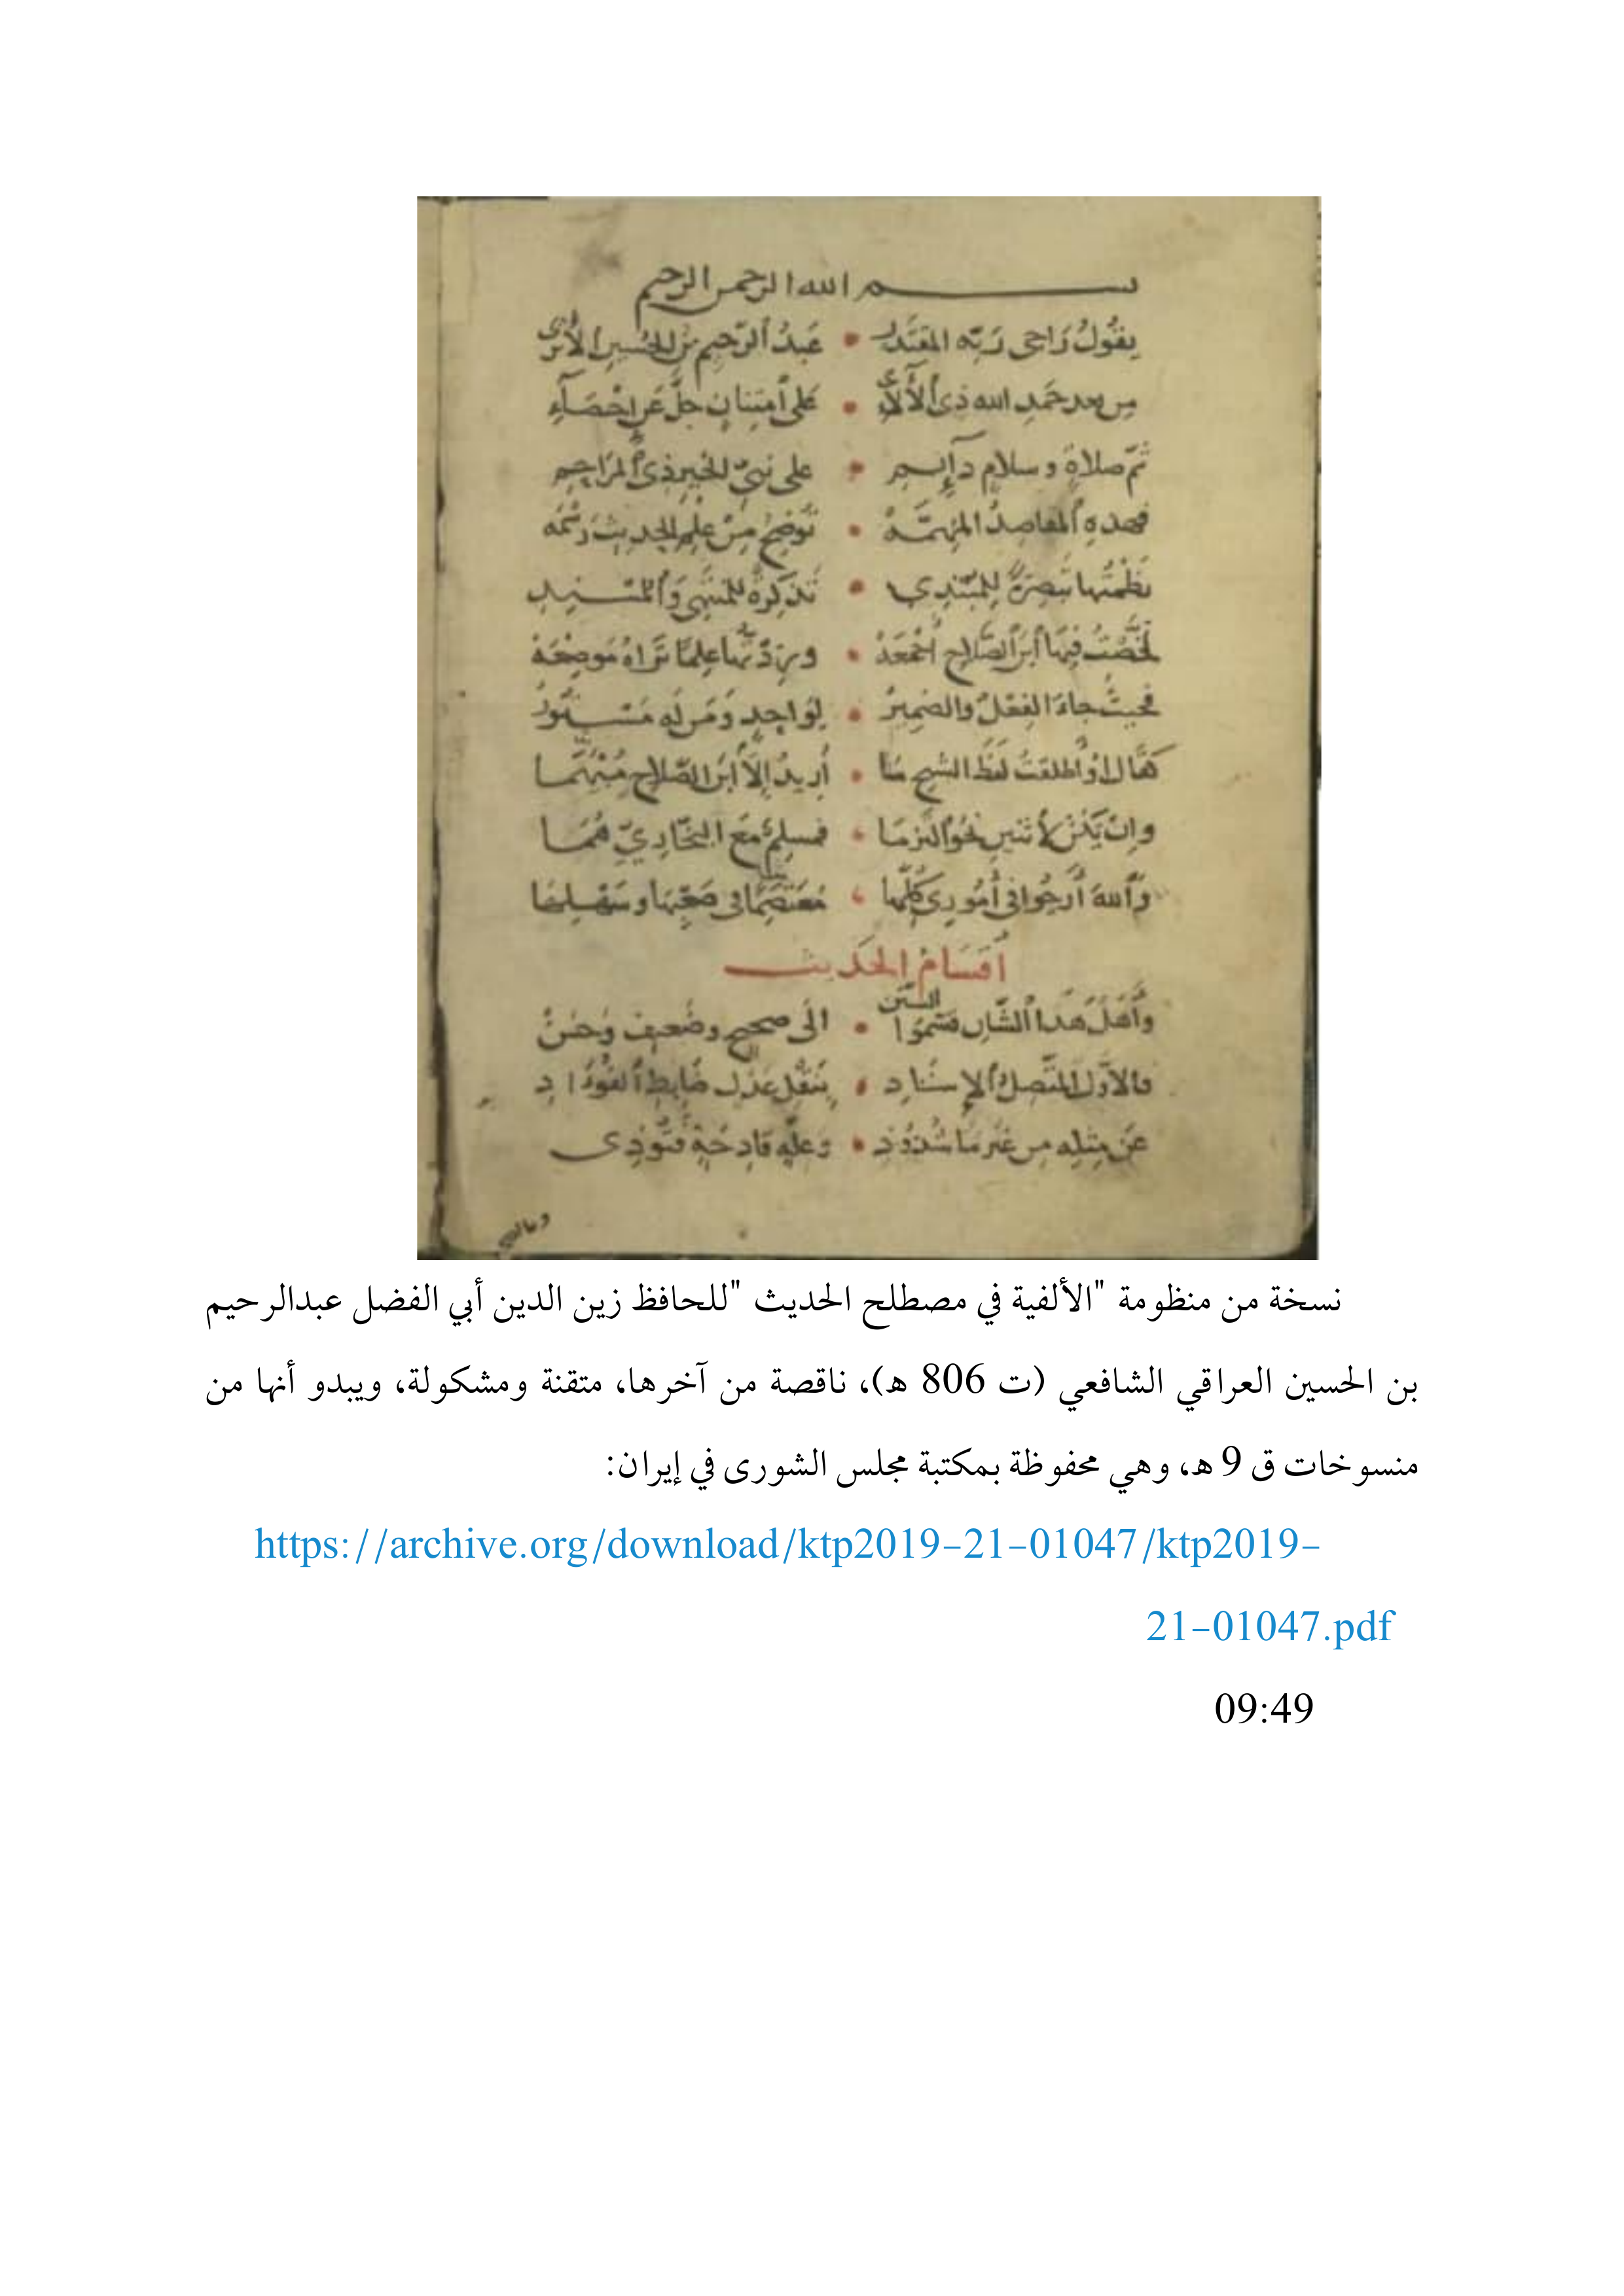 بسم الله الرحمن الرحيم
يَقُولُ رَاجِي رَبِّهِ المُقْتَدِرِ • عَبْدُ ٱلرَّحِيمِ بْنُ الحُسَينِ ٱلأَثَرِي
مِن بعد حَمْدِ الله ذِي ٱلآلَآءِ • عَلَى ٱمْتِنَانٍ جَلَّ عَن إِحْصَآءِ
ثُمّ صلاةٍ وسلامٍ دَآئِمِ • على نبيّ الخيرِ ذِي ٱلمَرَاحِمِ
فهذهِ ٱلمقاصدُ المُهِمَّهْ • تُوَضِحُ مِنْ عِلمِ الحديثِ رَسْمَه
نَظَمْتُها تَبْصِرَةً لِلْمُبْتَدِي • تَذكِرةً للمُنْتَهِي وَٱلمُسْنِدِ
لَخَّصْتُ فِيهَا ٱبْنَ ٱلصَّلاحِ أَجْمَعَهْ • وزِدْتُهَا عِلْمًا تَرَاهُ مَوضِعَهْ
فحيثُ جاءَ الفِعْلُ والضميرُ • لِوَاحِدٍ وَمَن لَه مَسْتُورُ
كَقَالَ أوْ أطلقتُ لفظَ الشيخِ مَا • أُرِيدُ إِلاَّ ٱبْنَ الصّلاحِ مُبْهَمَا
وإن يَكُنْ لِاثنينِ نحوُ التزمَا • فمسلِمٌ مَعَ البُخَارِيِّ هُمَا
وَٱللهَ أَرجُوا في أُمُورِي كُلِّهَا • مُعْتَصَمًا في صَعْبِهَا وسَهْلِهَا
أَقسَامُ الحَديث
وَأَهْلُ هَذا ٱلشَّانِ قَسَّمُوا السُّنَن • الَى صحيحٍ وضَعيفٍ وَحَسَنْ
فالأوَّلُ المُتَّصِلُ ٱلإِسْنَادِ • بِنَقْلِ عَدْلٍ ضَابِطِ ٱلفُؤَادِ
عَنْ مِثلِهِ مِن غَيْرِ مَا شُذُوذِ • وَعِلَّةٍ قَادِحَةٍ فَتُوذِي
نسخة من منظومة "الألفية في مصطلح الحديث "للحافظ زين الدين أبي الفضل عبدالرحيم
بن الحسين العراقي الشافعي (ت 806 هـ)، ناقصة من آخرها، متقنة ومشكولة، ويبدو أنها من
منسوخات ق 9 هـ، وهي محفوظة بمكتبة مجلس الشورى في إيران:
https://archive.org/download/ktp2019-21-01047/ktp2019-
21-01047.pdf
09:49